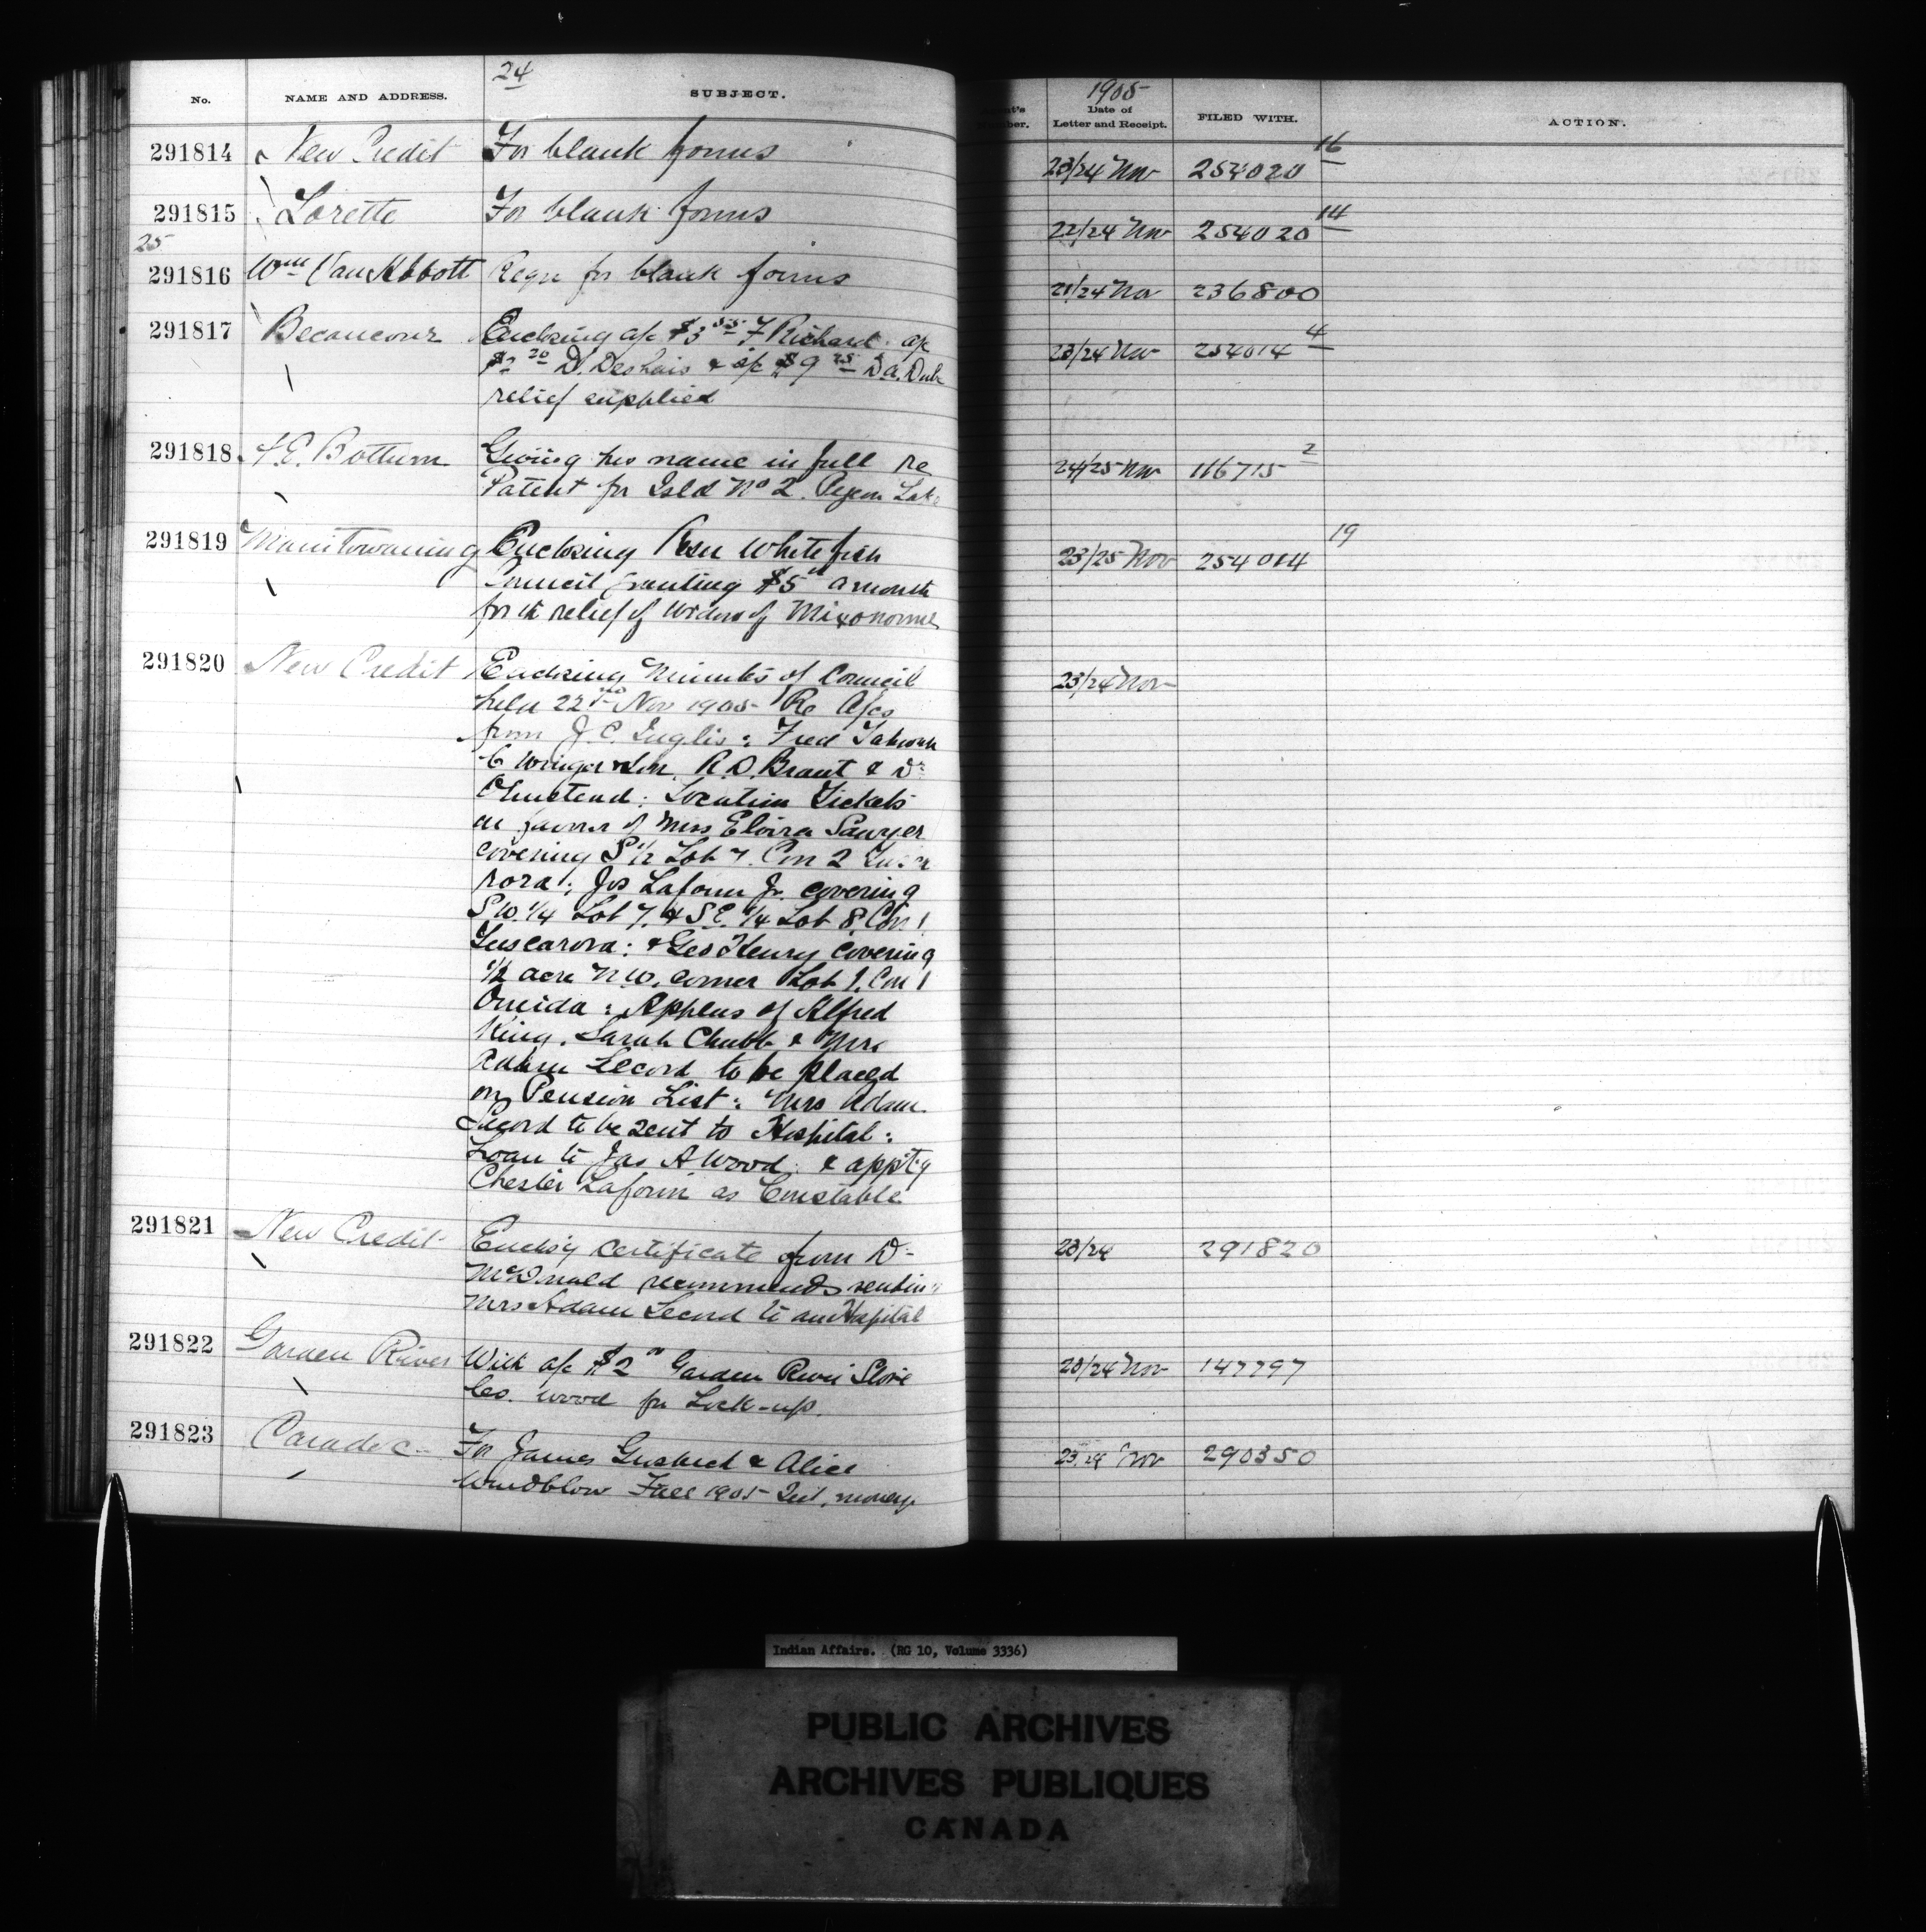 24
No. NAME AND ADDRESS. SUBJECT.
1905
Date of
Letter and Receipt. FILED WITH. ACTION.
291814 New Credit For blank forms 23/24 Nov 254020 16
291815 Lorette For blank forms 22/24 Nov 254020 14
25
291816 Wm Van Abbott Reqn for blank forms 21/24 Nov 236800
291817 Becancour Enclosing a/c $3 55 F Richard a/c 23/24 Nov 254014 4
$2 20 D. Deshais & a/c $9 25 D a. Dub
relief supplied
291818 F. E. Bottum Giving his name in full re 24/25 Nov 116715 2
Patent for Isld No 2. Pigeon Lake
291819 Manitowaning Enclosing Resn Whitefish 23/25 Nov 254014 19
Council granting $5 a month
for the relief of widow of
291820 New Credit Enclosing Minutes of Council 23/24 Nov
held 22nd Nov 1905 Re A/cs
from J. C. Inglis : Fred
C Winger & Son, R. D. Brant & Dr
Olmstead : Location Tickets
in favor of Mrs Elvira Sawyer
covering S 1/2 Lot 7. Con 2 Tusca
rora : Jos Laform Jr. covering
S W. 1/4 Lot 7. & S E. 1/4 Lot 8. Con 1
Tuscarora : & Geo Henry covering
1/2 acre N.W. corner Lot 1. Con 1
Oneida : Applcns of Alfred
King, Sarah Chubb & Mrs
Adam Secord to be placed
on Pension List : Mrs Adam
Secord to be sent to Hospital :
Loan to Jas A Wood : & appt'g
Chester Laform as Constable
291821 New Credit Enclos'g certificate from Dr 23/24 291820
McDonald recommends sending
Mrs Adam Secord to an Hospital
291822 Garden River With a/c $2 00 Garden River Store 20/24 Nov 147797
Co. wood for Lock-up.
291823 Caradoc For James & Alice 23/24 Nov 290350
Windblow Fall 1905 Int. money
Indian Affairs. (RG 10, Volume 3336)
PUBLIC ARCHIVES
ARCHIVES PUBLIQUES
CANADA